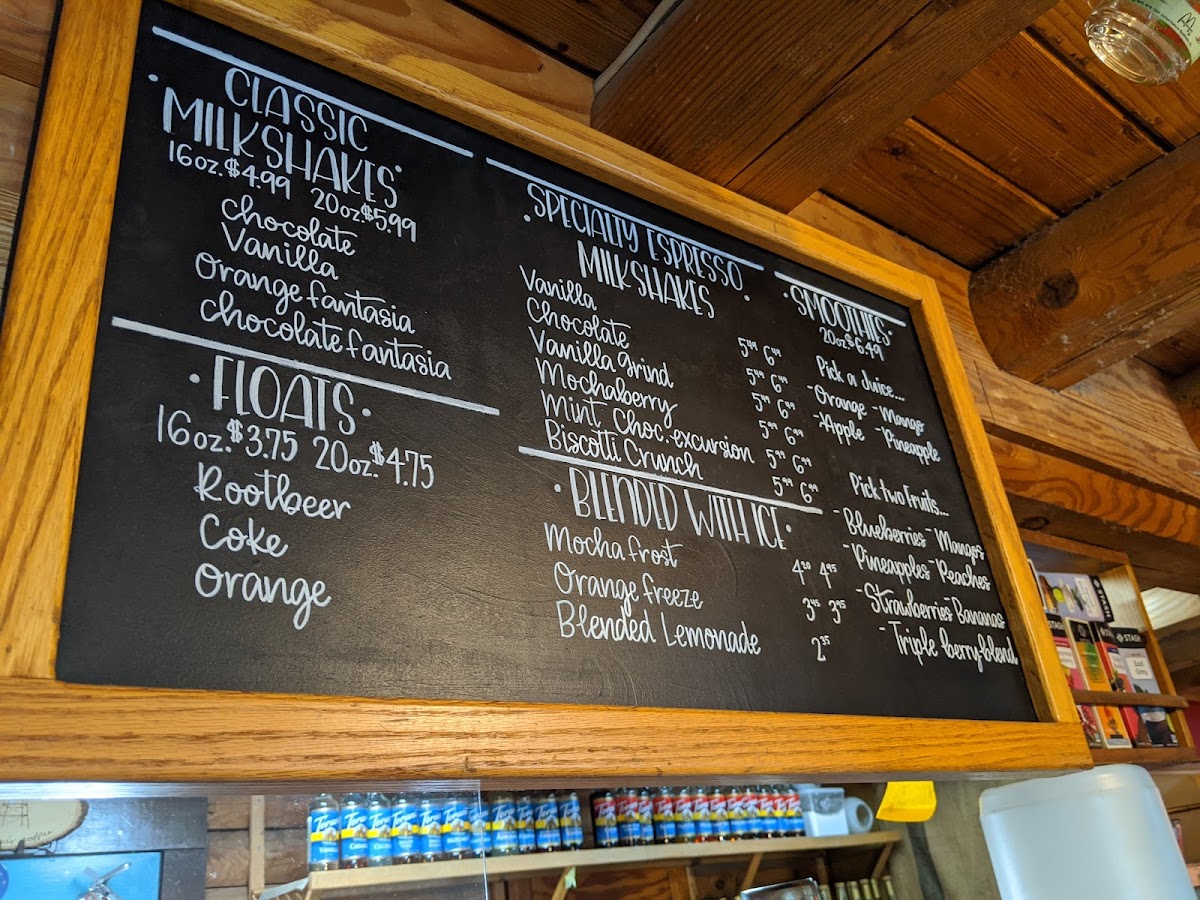 CLASSIC
MILKSHAKES
16oz. $4.99 20oz. $5.99
chocolate
Vanilla
orange fantasia
chocolate fantasia
FLOATS
16oz. $3.75 20oz. $4.75
Rootbeer
Coke
orange
SPECIALTY ESPRESSO
MILKSHAKES
Vanilla 5⁴⁹ 6⁴⁹
Chocolate 5⁴⁹ 6⁴⁹
Vanilla grind 5⁴⁹ 6⁴⁹
Mochaberry 5⁴⁹ 6⁴⁹
Mint Choc. excursion 5⁴⁹ 6⁴⁹
Biscotti Crunch 5⁴⁹ 6⁴⁹
BLENDED WITH ICE
Mocha frost 4²⁰ 4⁹⁵
Orange freeze 3⁴⁵ 3⁹⁵
Blended Lemonade 2³⁵
SMOOTHIES
20oz. $6.49
Pick a Juice...
-Orange -Mango
-Apple -Pineapple
Pick two Fruits...
-Blueberries -Mangos
-Pineapples -Peaches
-Strawberries -Bananas
-Triple berry blend
STASH
STASH
Torani